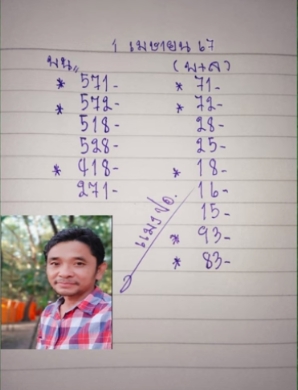 1 เมษายน 67
บน,, (บ+ล)
* 571- * 71-
* 572- * 72-
518- 28-
528- 25-
* 418- * 18-
271- 16-
15-
* 93-
* 83-